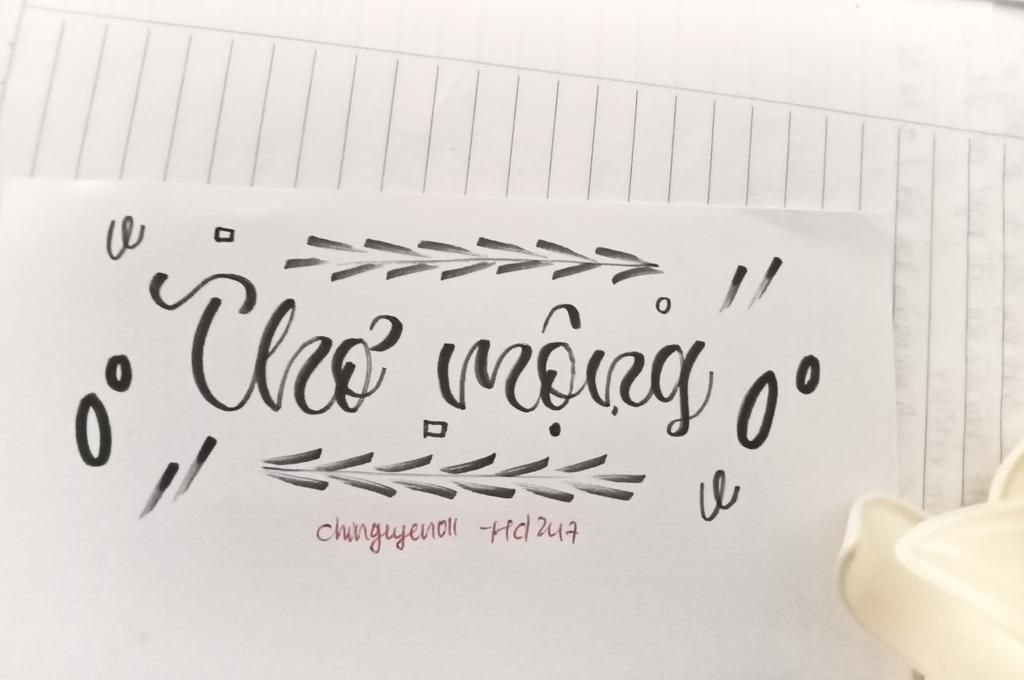 Thơ mộng
chinguyen011 -Hd247